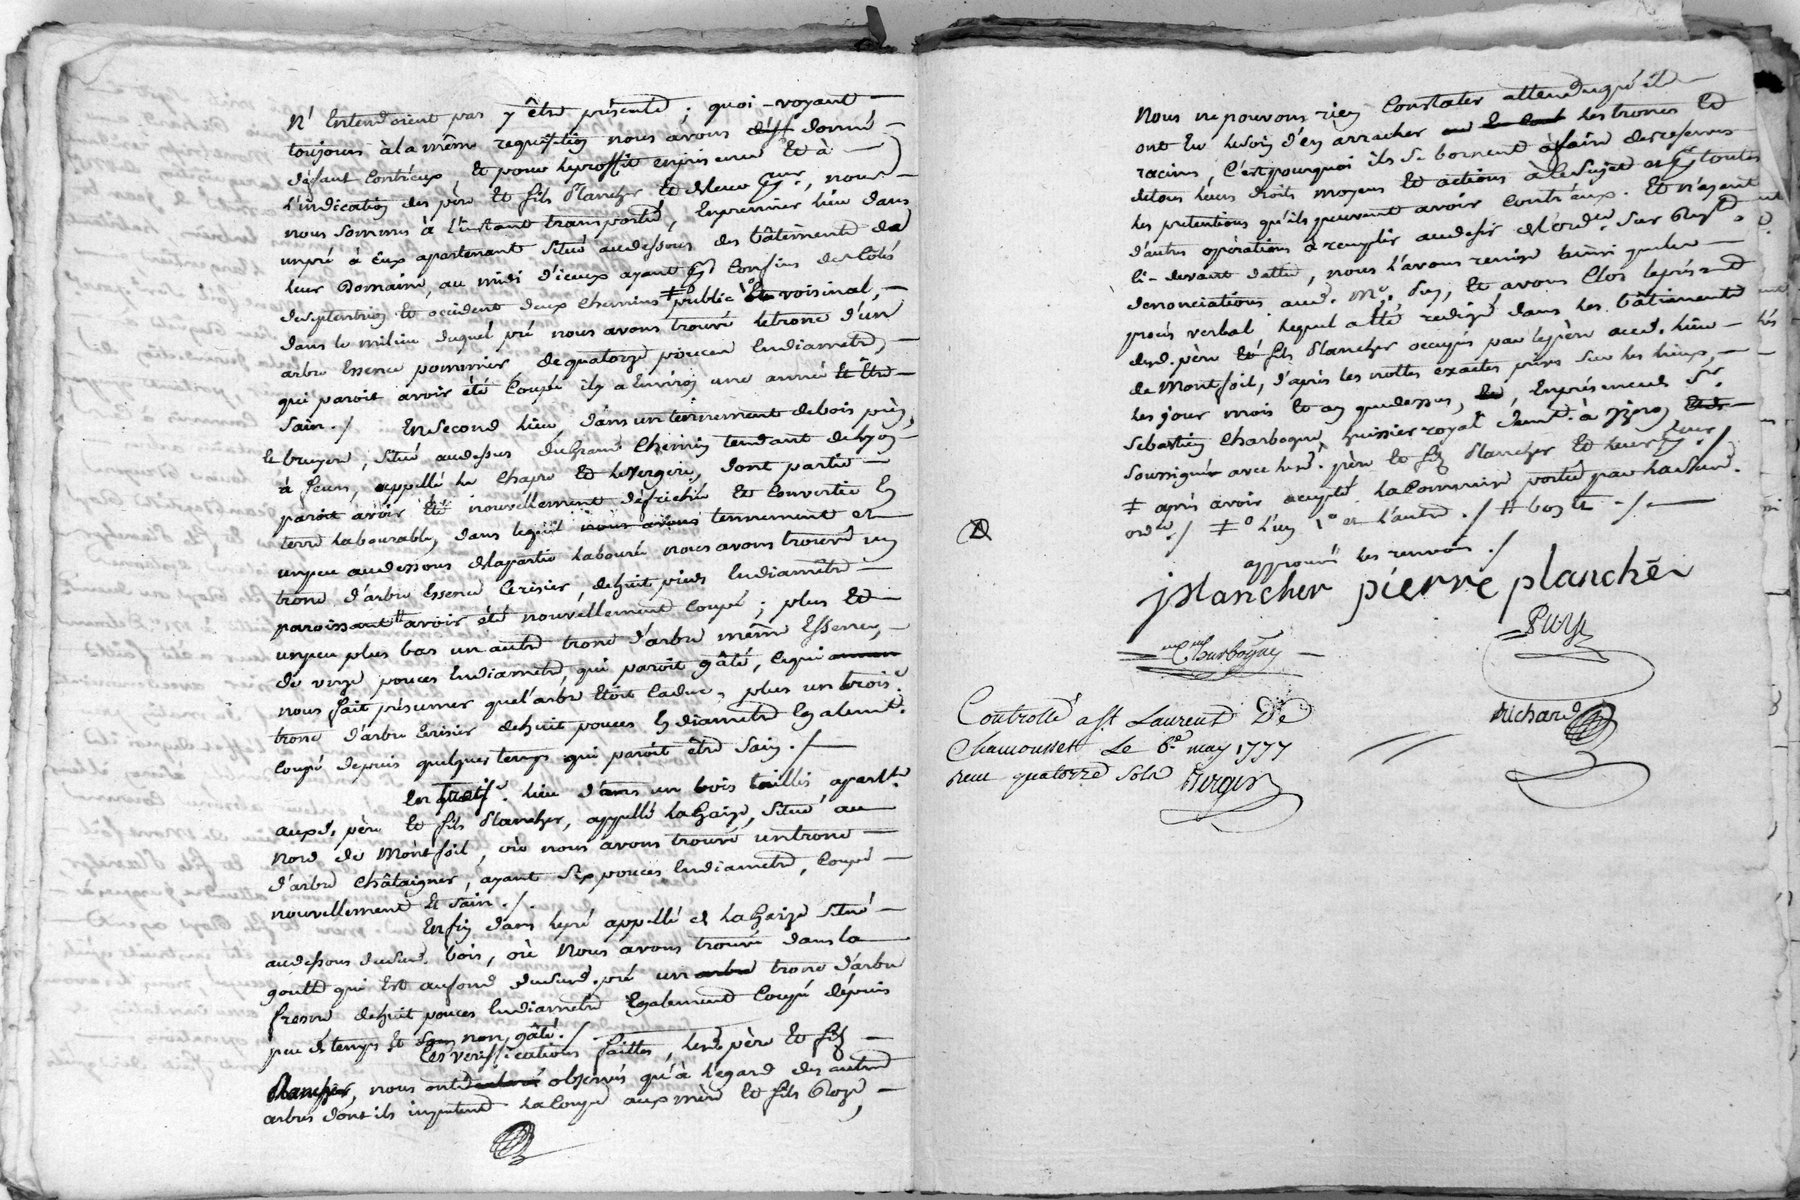 N'Entendoient pas y être présents ; quoi-voyant
toujours à la même requisition nous avons donné
défaut contr'eux Et pour le proffit en présence Et à
l'indication des père Et fils Plancher Et de leur , nous
nous sommes à l'instant transportés, En premier lieu dans
un pré à Eux apartenant situé audessous des bâtiments de
leur Domaine, au midi d'iceux ayant pour confins des côtés
de septentrion Et occident deux chemins ≠ public Et voisinal,
dans le milieu duquel pré nous avons trouvé le tronc d'un
arbre Essence pommier de quatorze pouces En diametre,
qui paroit avoir été coupé il y a Environ une année Et Etre
sain ./ En second lieu, dans un tennement de bois pin,
Et bruyere, situé audessus du grand Chemin tendant de Lyon
à feurs, appellé le Chapre Et le Vergere, dont partie
paroit avoir Eté nouvellement défrichée Et convertie En
terre labourable, dans lequel nous avons tennement et
un peu audessous de la partie labourée nous avons trouvé un
tronc d'arbre Essence Cerisier, de huit pieds En diamêtre
paroissant # avoir été nouvellement coupé ; plus Et
un peu plus bas un autre tronc d'arbre même Essence,
de onze pouces En diametre, qui paroit gâté, ce qui
nous fait présumer que l'arbre Etoit caduc, plus un trois.e
tronc d'arbre Cerisier de huit pouces En diametre Egalemt.
coupé depuis quelques temps qui paroit être sain ./
En lieu dans un bois taillis, apart.t
auxd. père Et fils Plancher, appellé la haize, situé au
Nord de Montfoil, où nous avons trouvé un tronc
d'arbre Châtaigner, ayant six pouces En diametre, coupé
nouvellement Et sain ./.
Enfin dans le pré appellé de la haize situé
audessous dudit bois, où Nous avons trouvé dans la
goutte qui Est au fond dudit pré un arbre tronc d'arbre
fresne de huit pouces En diametre Egalement Coupé dépuis
peu de temps Et non gâté ./
Ces verifications faittes, lesd. père Et fils
Plancher, nous ont observés qu'à l'egard des autres
arbres dont ils imputent la coupe aux mère Et fils Roze,
Nous ne pouvons rien Constater attendu qu'ils
ont Eu besoin d'en arracher les troncs Et
racines, C'est pourquoi ils se bornent à faire des reserves
de tous leurs droits moyens Et actions à ce sujet et pour toutes
les pretentions qu'ils peuvent avoir contr'eux. Et n'ayant
d'autres opérations à remplir au desir de l'ord.ce sur Req.te
ci-devant dattée, nous l'avons remise ainsi que les
denonciations aud. M.e Puy, Et avons Clos le présent
procès verbal lequel a été redigé dans les bâtiments
desd. père Et fils Plancher occupés par le père aud. lieu
de Montfoil, d'après les nottes exactes prises sur les lieux,
les jour mois Et an que dessus, En présence du S.r
Sebastien Charbogne huissier royal à yzeron
soussigné avec lesd. père Et fils Plancher Et leur ./
≠ après avoir accepté la Commission portée par lad.
ord.ce ./ ≠° l'un 1° et l'autre ./ # bois Et ./
approuvé les renvois ./
J plancher pierre planchér
Puy
Charbogne
Richard
Controllé a st Laurent De
Chamousset Le 6.e may 1777
recu quatorze sols Berger